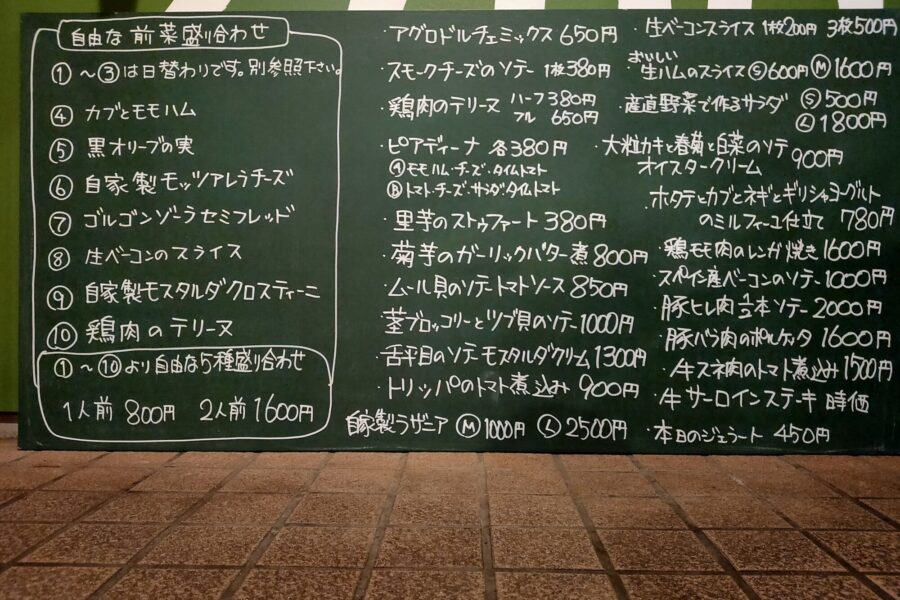 自由な前菜盛り合わせ
①～③は日替わりです。別参照下さい。
④ カブとモモハム
⑤ 黒オリーブの実
⑥ 自家製モッツアレラチーズ
⑦ ゴルゴンゾーラセミフレッド
⑧ 生ベーコンのスライス
⑨ 自家製モスタルダクロスティーニ
⑩ 鶏肉のテリーヌ
①～⑩より自由な5種盛り合わせ
1人前 800円 2人前 1600円
・アグロドルチェミックス 650円
・スモークチーズのソテー 1枚380円
・鶏肉のテリーヌ ハーフ 380円
フル 650円
・ピアディーナ 各380円
Ⓐモモハム・チーズ・タイムトマト
Ⓑトマト・チーズ・サラダ・タイムトマト
・里芋のストゥファート 380円
・菊芋のガーリックバター煮 800円
・ムール貝のソテートマトソース 850円
・茎ブロッコリーとツブ貝のソテー 1000円
・舌平目のソテーモスタルダクリーム 1300円
・トリッパのトマト煮込み 900円
自家製ラザニア Ⓜ 1000円 Ⓛ 2500円
・生ベーコンスライス 1枚200円 3枚500円
おいしい
・生ハムのスライス Ⓢ600円 Ⓜ1600円
・産直野菜で作るサラダ Ⓢ500円
Ⓛ1800円
・大粒カキと春菊と白菜のソテー
オイスタークリーム 900円
・ホタテとカブとネギとギリシャヨーグルト
のミルフィーユ仕立て 780円
・鶏モモ肉のレンガ焼き 1600円
・スペイン産ベーコンのソテー 1000円
・豚ヒレ肉立本ソテー 2000円
・豚バラ肉のポルケッタ 1600円
・牛スネ肉のトマト煮込み 1500円
・牛サーロインステーキ 時価
・本日のジェラート 450円